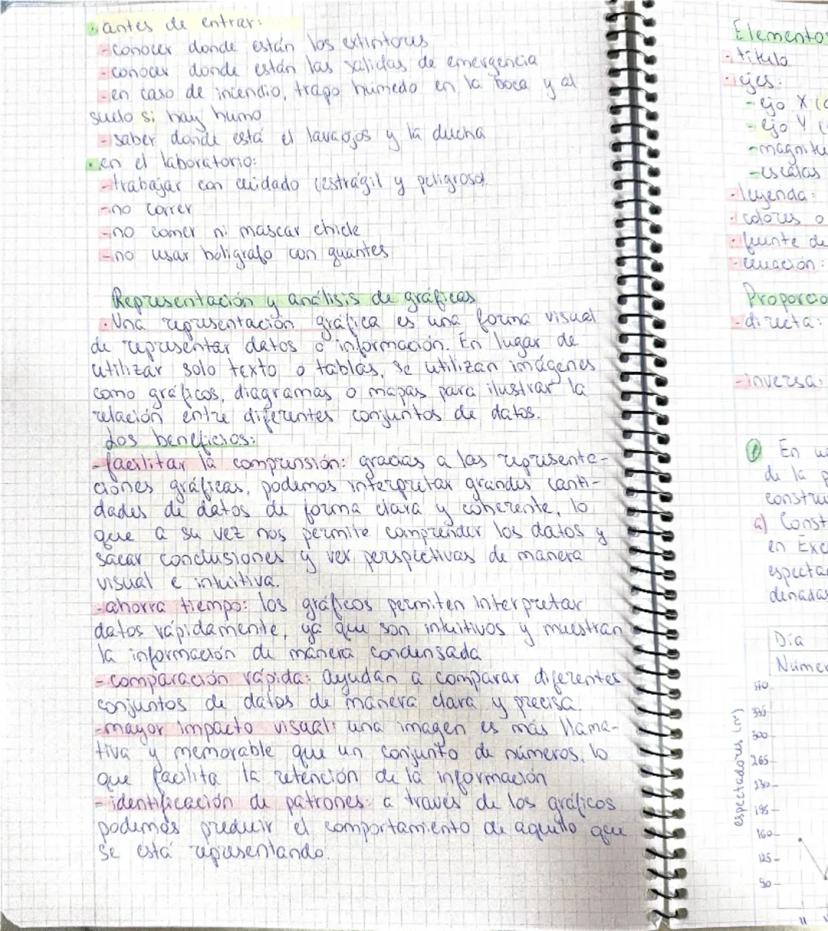 • antes de entrar:
- conocer donde están los extintores
- conocer donde están las salidas de emergencia
- en caso de incendio, trapo húmedo en la boca y al
suelo si hay humo
- saber donde está el lavaojos y la ducha
• en el laboratorio:
- trabajar con cuidado (es frágil y peligroso)
- no correr
- no comer ni mascar chicle
- no usar boligrafo con guantes
Representación y análisis de gráficas
• Una representación gráfica es una forma visual
de representar datos o información. En lugar de
utilizar solo texto o tablas, se utilizan imágenes
como gráficos, diagramas o mapas para ilustrar la
relación entre diferentes conjuntos de datos.
Los beneficios:
- facilitar la comprensión: gracias a las representa-
ciones gráficas, podemos interpretar grandes canti-
dades de datos de forma clara y coherente, lo
que a su vez nos permite comprender los datos y
sacar conclusiones y ver perspectivas de manera
visual e intuitiva.
- ahorra tiempo: los gráficos permiten interpretar
datos rápidamente, ya que son intuitivos y muestran
la información de manera condensada
- comparación rápida: ayudan a comparar diferentes
conjuntos de datos de manera clara y precisa.
- mayor impacto visual: una imagen es más llama-
tiva y memorable que un conjunto de números, lo
que facilita la retención de la información
- identificación de patrones: a través de los gráficos
podemos predecir el comportamiento de aquello que
se está representando.
Elementos
• título
• ejes:
- eje X (
- eje Y (
- magnitu
- escalas
• leyenda:
• colores o
• fuente de
• ecuación:
Proporcio
- directa:
- inversa:
① En u
de la p
constru
a) Const
en Exc
especta
denadas
Día
Númer
espectadores (M)
370
335
300
265
230
195
160
125
90